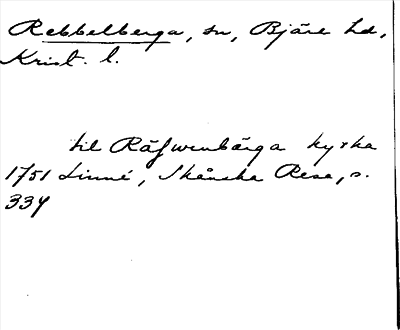 Rebbelberga, sn, Bjäre hd,
Krist. l.
til Räfwenbärga kyrka
1751 Linné, Skånska Resa, s.
334